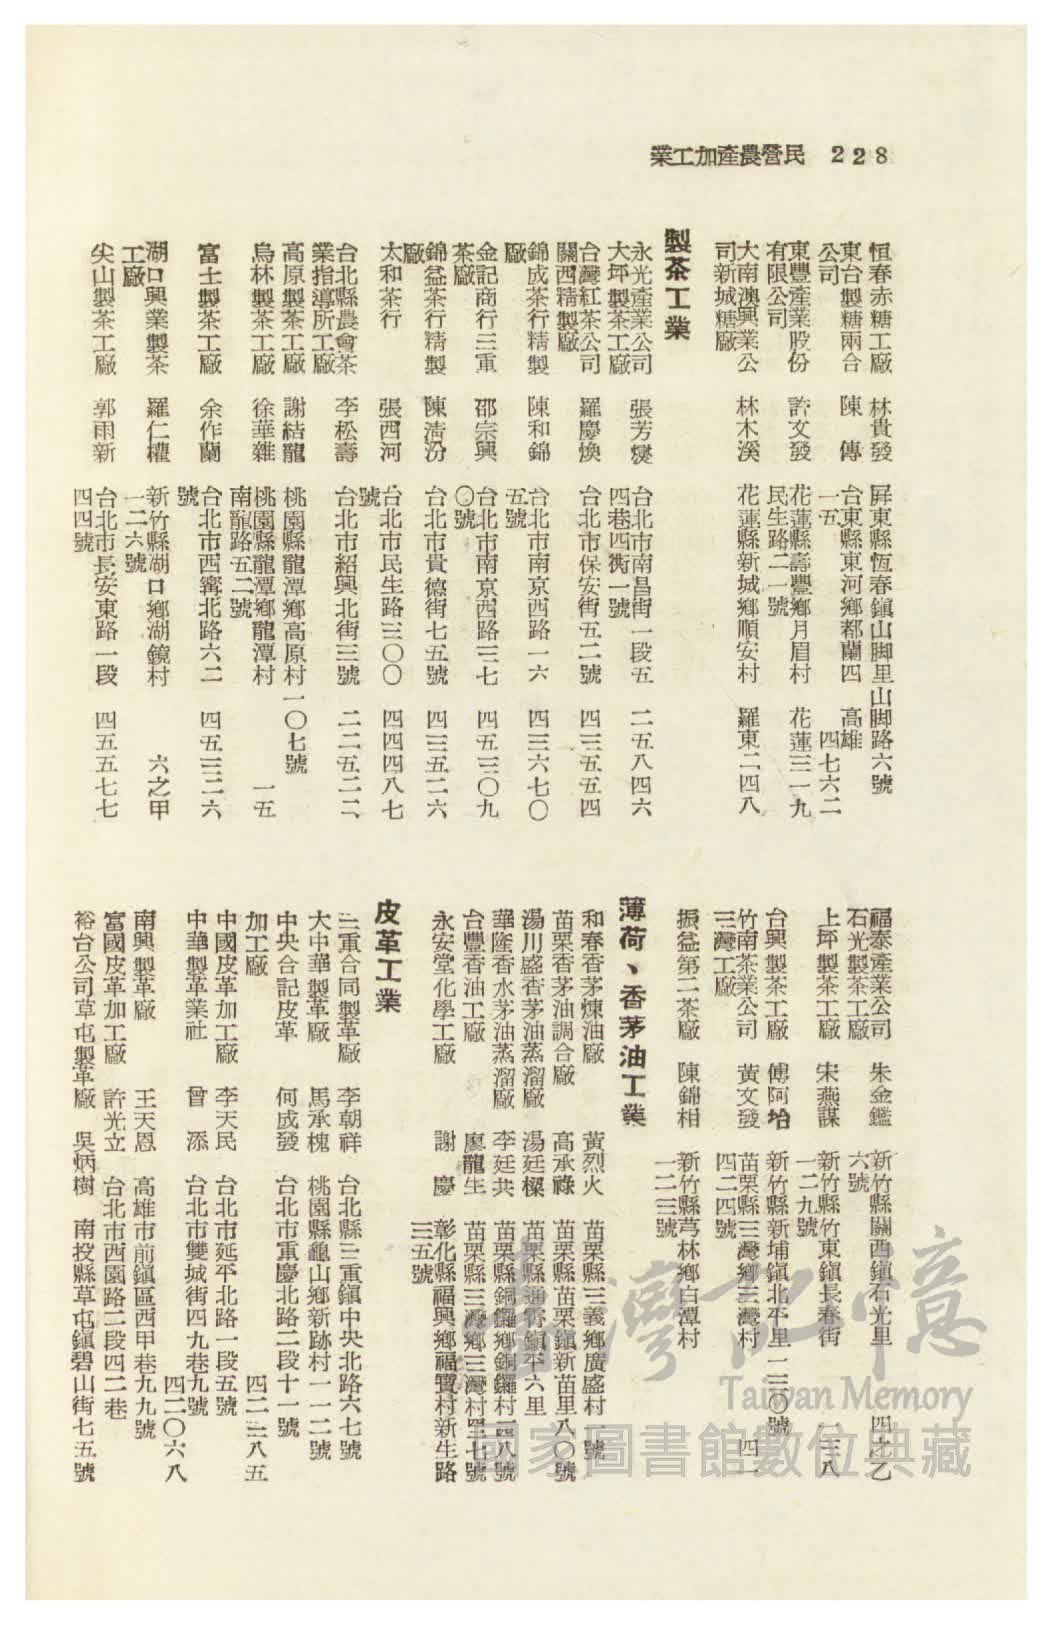 業工加產農營民 228
恒春赤糖工廠 林貴發 屏東縣恆春鎮山脚里山脚路六號
東台製糖兩合 陳 傳 台東縣東河鄉都蘭四 高雄
公司 一五 四七六二
東豐產業股份 許文發 花蓮縣壽豐鄉月眉村 花蓮三一九
有限公司 民生路二一號
大南澳興業公 林木溪 花蓮縣新城鄉順安村 羅東二四八
司新城糖廠
製茶工業
永光產業公司 張芳燮 台北市南昌街一段五 二五八四六
大坪製茶工廠 四巷四衖一號
台灣紅茶公司 羅慶煥 台北市保安街五二號 四三五五四
關西精製廠
錦成茶行精製 陳和錦 台北市南京西路一六 四三六七〇
廠 五號
金記商行三重 邵宗興 台北市南京西路三七 四五三〇九
茶廠 〇號
錦益茶行精製 陳清汾 台北市貴德街七五號 四三五二六
廠
太和茶行 張西河 台北市民生路三〇〇 四四四八七
號
台北縣農會茶 李松壽 台北市紹興北街三號 二二五二二
業指導所工廠
高原製茶工廠 謝結龍 桃園縣龍潭鄉高原村一〇七號
烏林製茶工廠 徐華雜 桃園縣龍潭鄉龍潭村 一五
南龍路五二號
富士製茶工廠 余作蘭 台北市西寧北路六二 四五三二六
號
湖口興業製茶 羅仁權 新竹縣湖口鄉湖鏡村 六之甲
工廠 一二六號
尖山製茶工廠 郭雨新 台北市長安東路一段 四五五七七
四四號
福泰產業公司 朱金鑑 新竹縣關西鎮石光里 四之乙
石光製茶工廠 六號
上坪製茶工廠 宋燕謀 新竹縣竹東鎮長春街 一三八
一二九號
台興製茶工廠 傅阿坮 新竹縣新埔鎮北平里一三〇號
竹南茶業公司 黃文發 苗栗縣三灣鄉三灣村 四一
三灣工廠 四二四號
振益第二茶廠 陳錦柑 新竹縣芎林鄉白潭村
一二三號
薄荷、香茅油工業
和春香茅煉油廠 黃烈火 苗栗縣三義鄉廣盛村一號
苗栗香茅油調合廠 高承祿 苗栗縣苗栗鎮新苗里八〇號
湯川盛香茅油蒸溜廠 湯廷樑 苗栗縣通霄鎮平六里
華隆香水茅油蒸溜廠 李廷共 苗栗縣銅鑼鄉銅鑼村 八號
台豐香油工廠 廖龍生 苗栗縣三灣鄉三灣村 七號
永安堂化學工廠 謝 慶 彰化縣福興鄉福寶村新生路
三五號
皮革工業
三重合同製革廠 李朝祥 台北縣三重鎮中央北路六七號
大中華製革廠 馬承槐 桃園縣龜山鄉新跡村一一二號
中央合記皮革 何成發 台北市重慶北路二段十一號
加工廠 四二三八五
中國皮革加工廠 李天民 台北市延平北路一段五號
中華製革業社 曾 添 台北市雙城街四九巷九號
四二〇六八
南興製革廠 王天恩 高雄市前鎮區西甲巷九九號
富國皮革加工廠 許光立 台北市西園路二段四二巷
裕台公司草屯製革廠 吳炳樹 南投縣草屯鎮碧山街七五號
臺灣記憶
Taiwan Memory
國家圖書館數位典藏